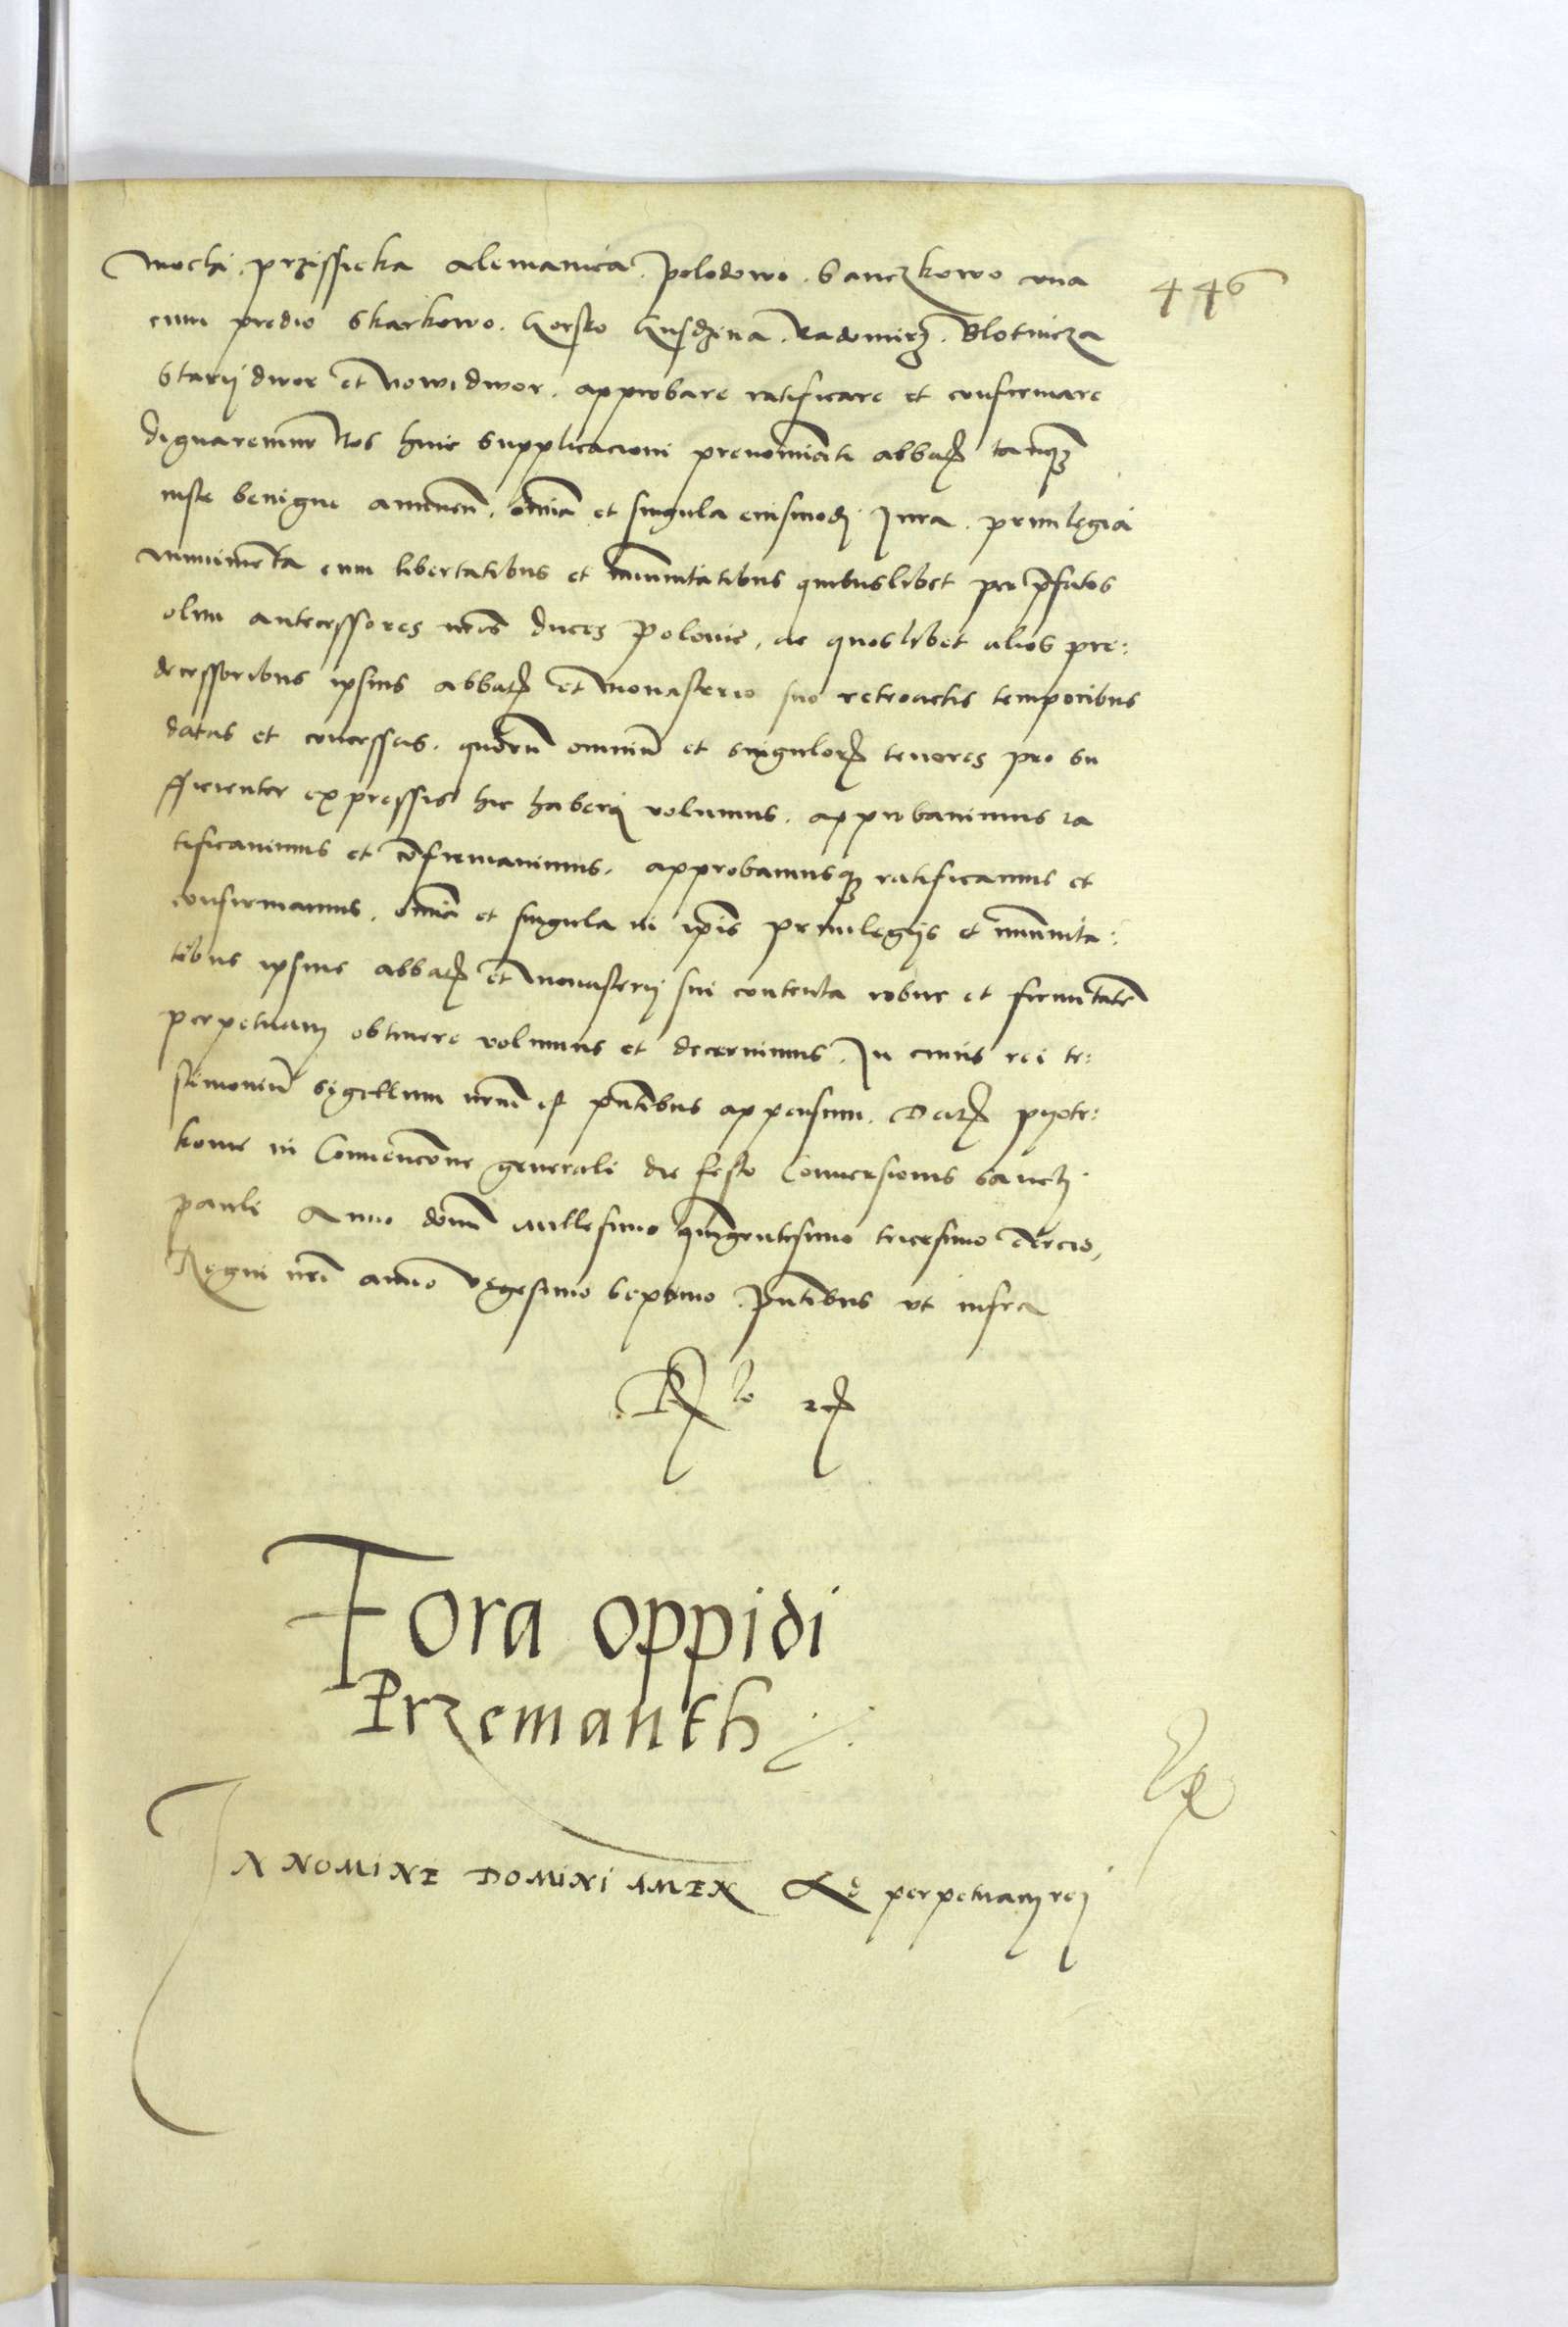 Mochi . przissieka alemanica . Polodowo . Sanczkowo una
446
cum predio Skarkowo . Gorsko Gusdzina . Radomirz . Blotnicza
Starij dwor et Nowidwor . approbare ratificare et confirmare
dignaremur Nos huic supplicacioni prenominati abbatis tanquam
iuste benigne annuen . omnia et singula eiusmodi Jura . privilegia
munimenta cum libertatibus et immunitatibus quibuslibet per prefatos
olim antecessores nros duces Polonie , ac quoslibet alios pre:
decessoribus ipsius abbatis et Monasterio suo retroactis temporibus
datas et concessas . quorum omnium et singulorum tenores pro su
fficienter expressis hic haberi volumus . approbavimus ra
tificavimus et confirmavimus . approbamusque ratificamus et
confirmamus . omnia et singula in ipsis privilegijs et immunita:
tibus ipsius abbatis et Monasterij sui contenta robur et firmitatem
perpetuam obtinere volumus et decernimus . In cuius rei te:
stimonium sigillum nrum est pntibus appensum . Datum Pyotr:
kowie in Convencione generali die festo Conversionis Sancti
Pauli Anno domini Millesimo quingentesimo tricesimo tercio ,
Regni nri anno vigesimo septimo . Pntibus ut infra
Fora oppidi
Przemanth
IN NOMINE DOMINI AMEN Ad perpetuam rei